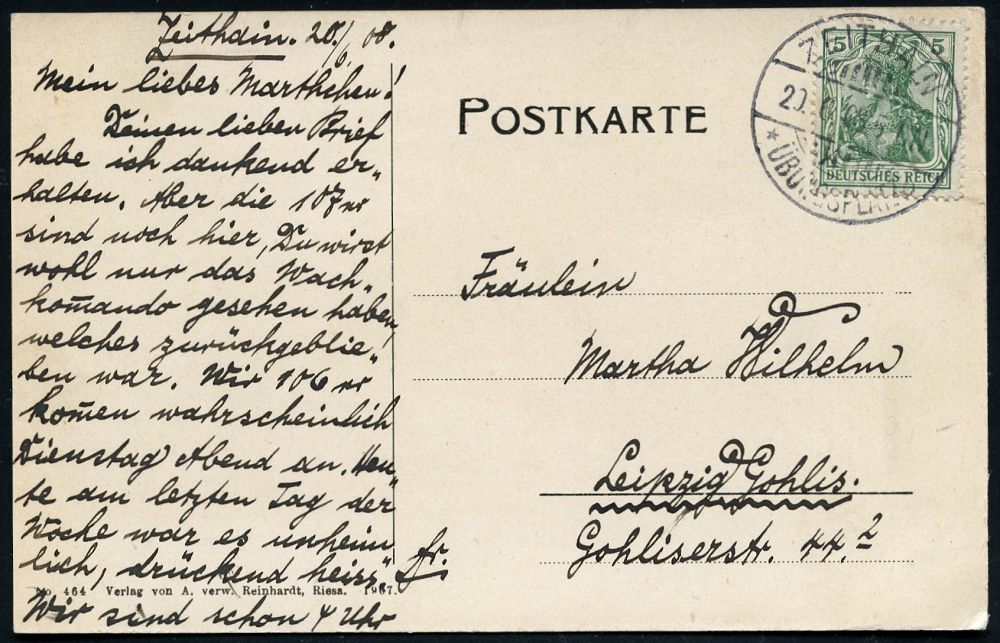 Zeithain. 20./6 08.
Mein liebes Marthchen!
Deinen lieben Brief
habe ich dankend er„
halten. Aber die 107er
sind noch hier, Du wirst
wohl nur das Wach„
kom̄ando gesehen haben
welches zurückgeblie„
ben war. Wir 106er
kom̄en wahrscheinlich
Dienstag Abend an. Heu„
te am letzten Tag der
Woche war es unheim
lich, drückend heiss".
No. 464 Verlag von A. verw. Reinhardt, Riesa. 1907.
Wir sind schon 4 Uhr
fr.
POSTKARTE
5 5
DEUTSCHES REICH
ZEITHAIN
ÜBUNGSPLATZ
Fräulein
Martha Wilhelm
Leipzig Gohlis.
Gohliserstr. 44.2